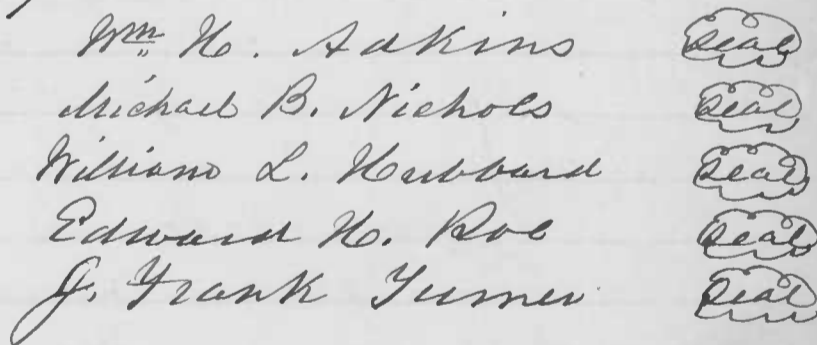 Wm. H. Adkins Seal
Michael B. Nichols Seal
William L. Hubbard Seal
Edward H. Roe Seal
J. Frank Turner Seal